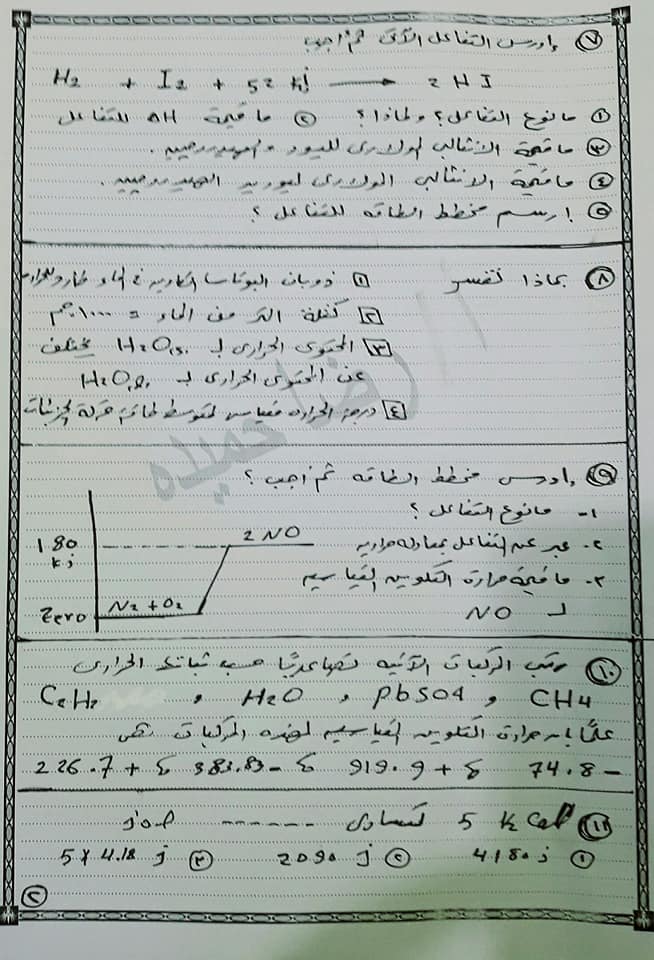 ٧ وادرس التفاعل الآتى ثم أجب
H2 + I2 + 52 kj → 2 HI
١ مانوع التفاعل؟ ولماذا؟ ٢ ماقيمة ΔH للتفاعل
٣ ماقيمة الانثالبى المولارى لليود والهيدروجين.
٤ ماقيمة الانثالبى المولارى ليوديد الهيدروجين.
٥ ارسم مخطط الطاقه للتفاعل؟
٨ بماذا تفسر ١ ذوبان البوتاسا الكاويه فى الماء طارد للحراره
٢ كتلة اللتر من الماء = ١٠٠٠ جم
٣ المحتوى الحرارى لـ H2O(s) يختلف
عن المحتوى الحرارى لـ H2O(l)
٤ درجة الحراره مقياس لمتوسط طاقة حركة الجزيئات
رضا حميده
٩ وادرس مخطط الطاقه ثم أجب؟
١- مانوع التفاعل؟
٢- عبر عن التفاعل بمعادله حراريه
٣- ماقيمة حرارة التكوين القياسيه
لـ NO
2 NO
180
kj
N2 + O2
Zero
١٠ رتب المركبات الآتيه تصاعديًا حسب ثباتها الحرارى
CH4 , PbSO4 , H2O , C2H2
علمًا بأن حرارة التكوين القياسيه لهذه المركبات هى
-74.8 & +919.9 & -383.83 & +226.7
١١ 5 k Cal تساوى ------ جول
١ 4180 j ٢ 2090 j ٣ 5 x 4.18 j
٢